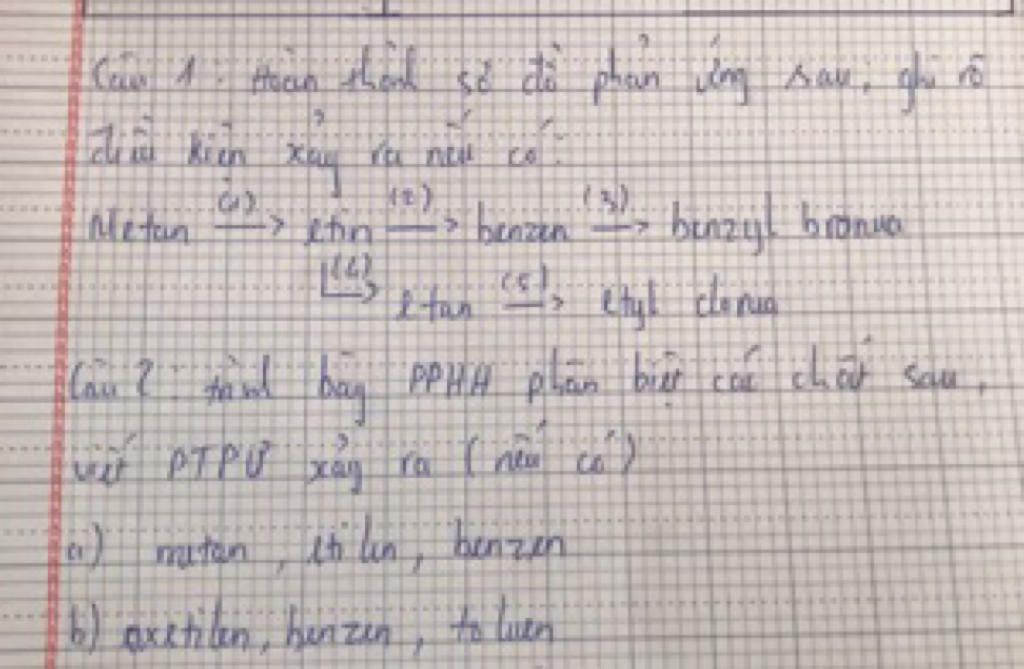 Câu 1. Hoàn thành sơ đồ phản ứng sau, ghi rõ
điều kiện xảy ra nếu có:
Metan (1)→ etin (2)→ benzen (3)→ benzyl bromua
(4)→ etan (5)→ etyl clorua
Câu 2: trình bày PPHH phân biệt các chất sau,
viết PTPƯ xảy ra (nếu có)
a) metan, etilen, benzen
b) axetilen, benzen, toluen